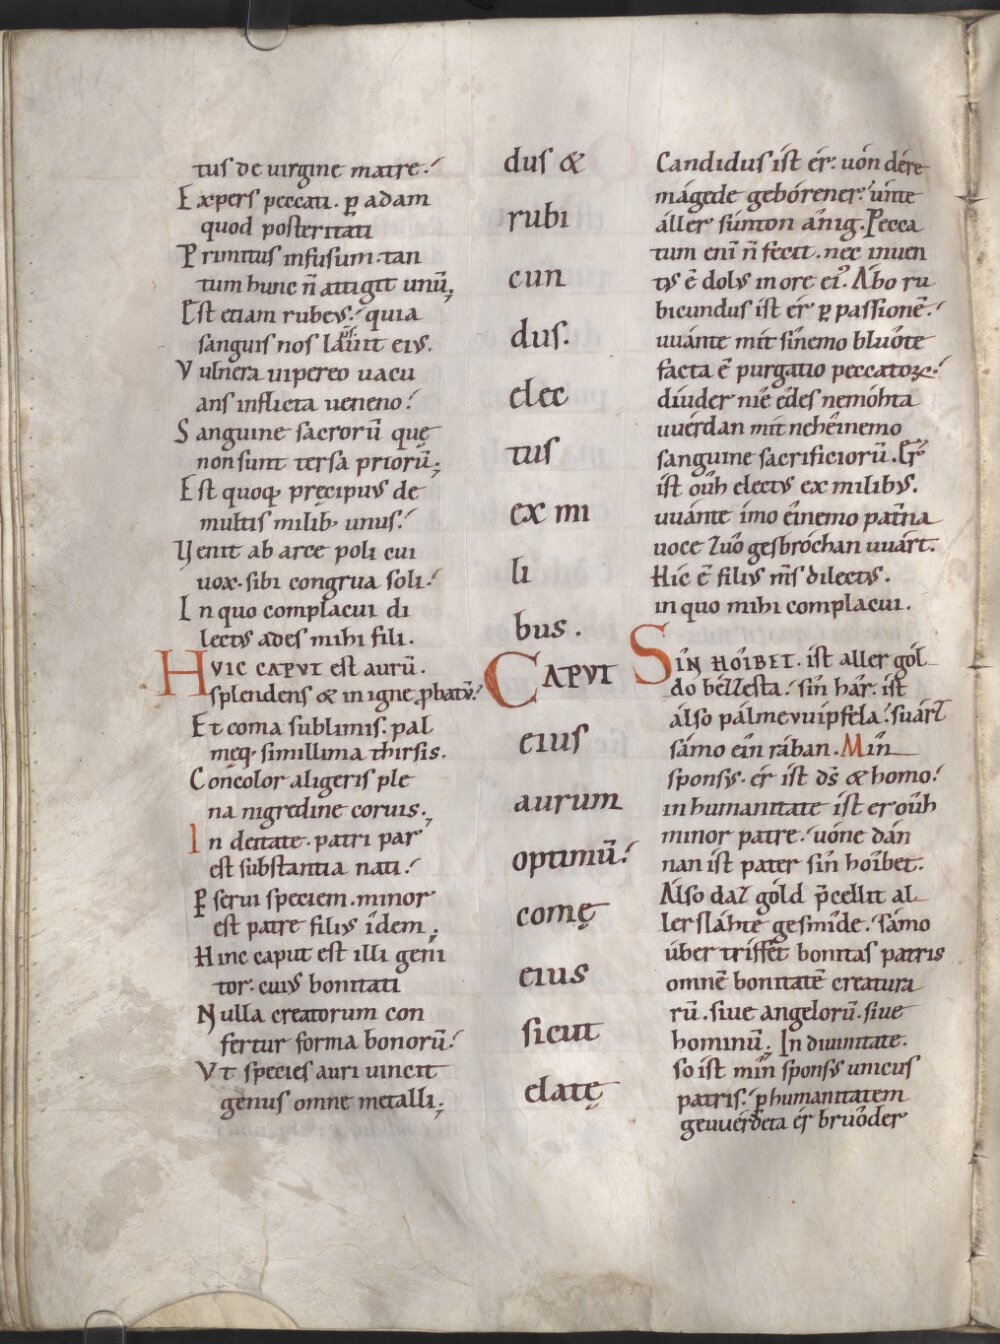 tus de uirgine matre.
Expers peccati. ꝑ adam
quod posteritati
Primitus infusum. tan
tum hunc n̄ attigit unū;
Est etiam rubeus. quia
sanguis nos lauit eius.
Vulnera uipereo uacu
ans inflicta ueneno.
Sanguine sacrorū quę
non sunt tersa priorū;
Est quoq; pręcipuus de
multis milib; unus.
Venit ab arce poli cui
uox. sibi congrua soli.
In quo complacui di
lectus ades mihi fili.
HVIC CAPVT est aurū.
splendens & in igne ꝓbatū.
Et coma sublimis. pal
meq; simillima thirsis.
Concolor aligeris ple
na nigredine coruis;
In deitate. patri par
est substantia nati.
Ꝑ serui speciem. minor
est patre filius idem;
Hinc caput est illi geni
tor. cuius bonitati
Nulla creatorum con
fertur forma bonorū.
Vt species auri uincit
genus omne metalli;
dus &
rubi
cun
dus.
elec
tus
ex mi
li
bus.
CAPVT
eius
aurum
optimū.
comę
eius
sicut
elatę
Candidus ist ér. uón dére
mágede gebórener. únte
áller súnton ânig. Pecca
tum enī n̄ fecit. nec inuen
tus ē dolus in ore ei᾿. Abo ru
bicundus ist ér ꝑ passionē.
uuánte mit sînemo blûote
facta ē purgatio peccatoꝝ.
díuder nîe êdes nemóhta
uuérdan mit neheînemo
sanguine sacrificiorū. Ér
ist oûh electus ex milibus.
uuánte ímo eînemo patna
uoce zuô gesbróchan uuárt.
Hic ē filius m̄s dilectus.
in quo mihi complacui.
SIN HOIBET. ist aller gól
do bézzesta. sîn hâr. ist
álso pálmeuuípfela. suárz
sámo eîn rában. Mîn
sponsus. ér ist ds̄ & homo.
in humanitate ist er oûh
minor patre. uóne dán
nan ist pater sîn hoîbet.
Álso daz góld p̄cellit al
ler sláhte gesmîde. sámo
úber triffet bonitas patris
omnē bonitatē creatura
rū. siue angelorū. siue
hominū; In diuinitate.
so ist mîn sponsus unicus
patris. ꝑ humanitatem
geuuérdeta ér brûoder